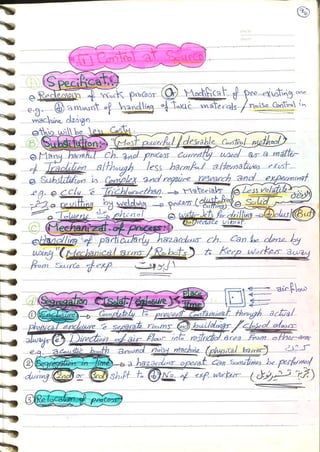 1 Control at Source
A Specificat.
Redesign of work process or Modificat. of pre-existing one
e.g. amount of handling of toxic materials / noise control in
machine design
this will be less costly
B Substitution:- (Most powerful / desirable control method)
Many harmful ch. and process currently used as a matter
of Tradition although less harmful alternatives exist
Substitution is Complex and require research and experiment
e.g. CCl4 Trichloroethan. → Materials Less volatile
riveting by welding → process Solid
Toluene phenol water-jets for drilling → dust But
C Mechanizat. of process:-
handling of particularly hazardous ch. Can be done by
using (Mechanical arms / Robots) to Keep workers away
from Source of exp
air flow
d Segregation (Isolat. / enclosure) Place Time
1 Enclosure → Completely to prevent Contaminat. through actual
physical enclosure separate rooms or buildings / closed doors
always Direction of air flow into restricted area from other area
e.g. acoustic booth around noisy machine (physical barrier)
2 Segregation in Time → a hazardous operat. Can sometimes be performed
during 2nd or 3rd shift to No. of exp. worker
3 Relocation of process